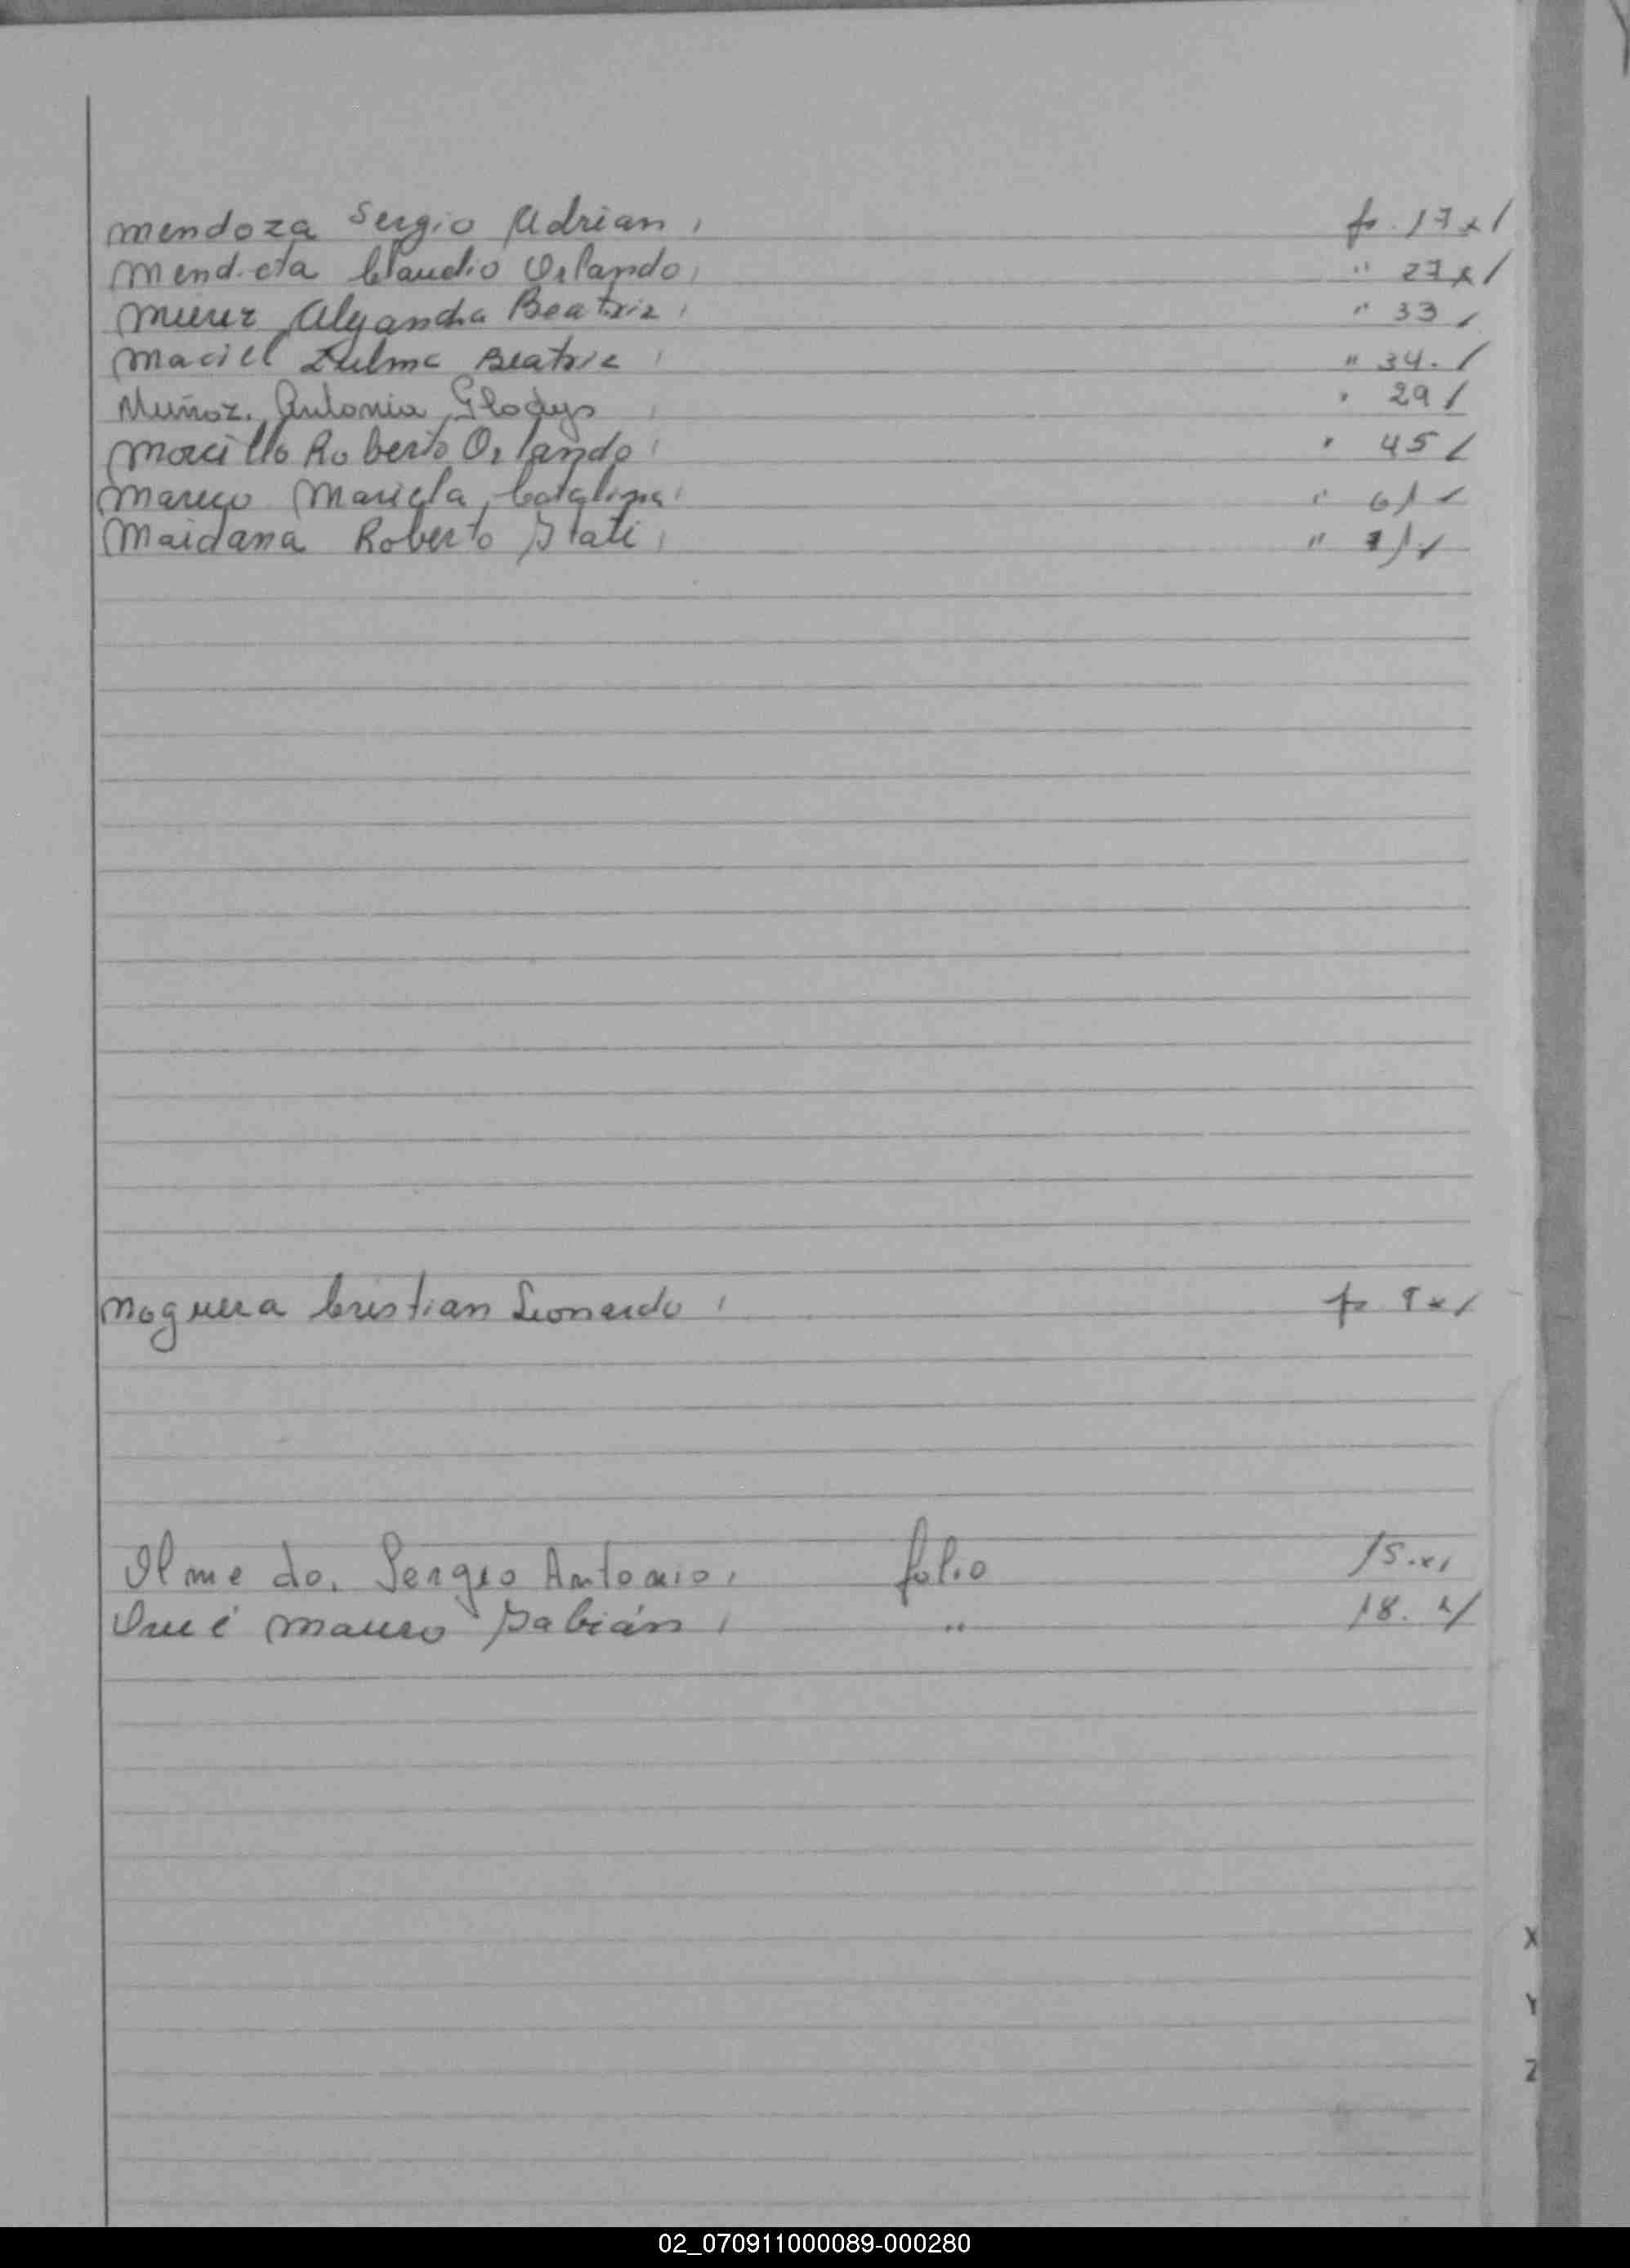 Mendoza Sergio Adrian, fo. 17 x /
Mendieta Claudio Orlando, " 27 x /
Alejandra Beatriz, " 33 /
Maciel Zulma Beatriz, " 34. /
Muñoz, Antonia Gladys, " 29 /
Morcillo Roberto Orlando, " 45 /
Mareco Mariela Catalina, "
Maidana Roberto Itati, "
Noguera Cristian Leonardo, fo 9 x /
Olmedo. Sergio Antonio, folio 15. x /
Mauro Fabián, " 18. x /
X
Y
Z
02_070911000089-000280